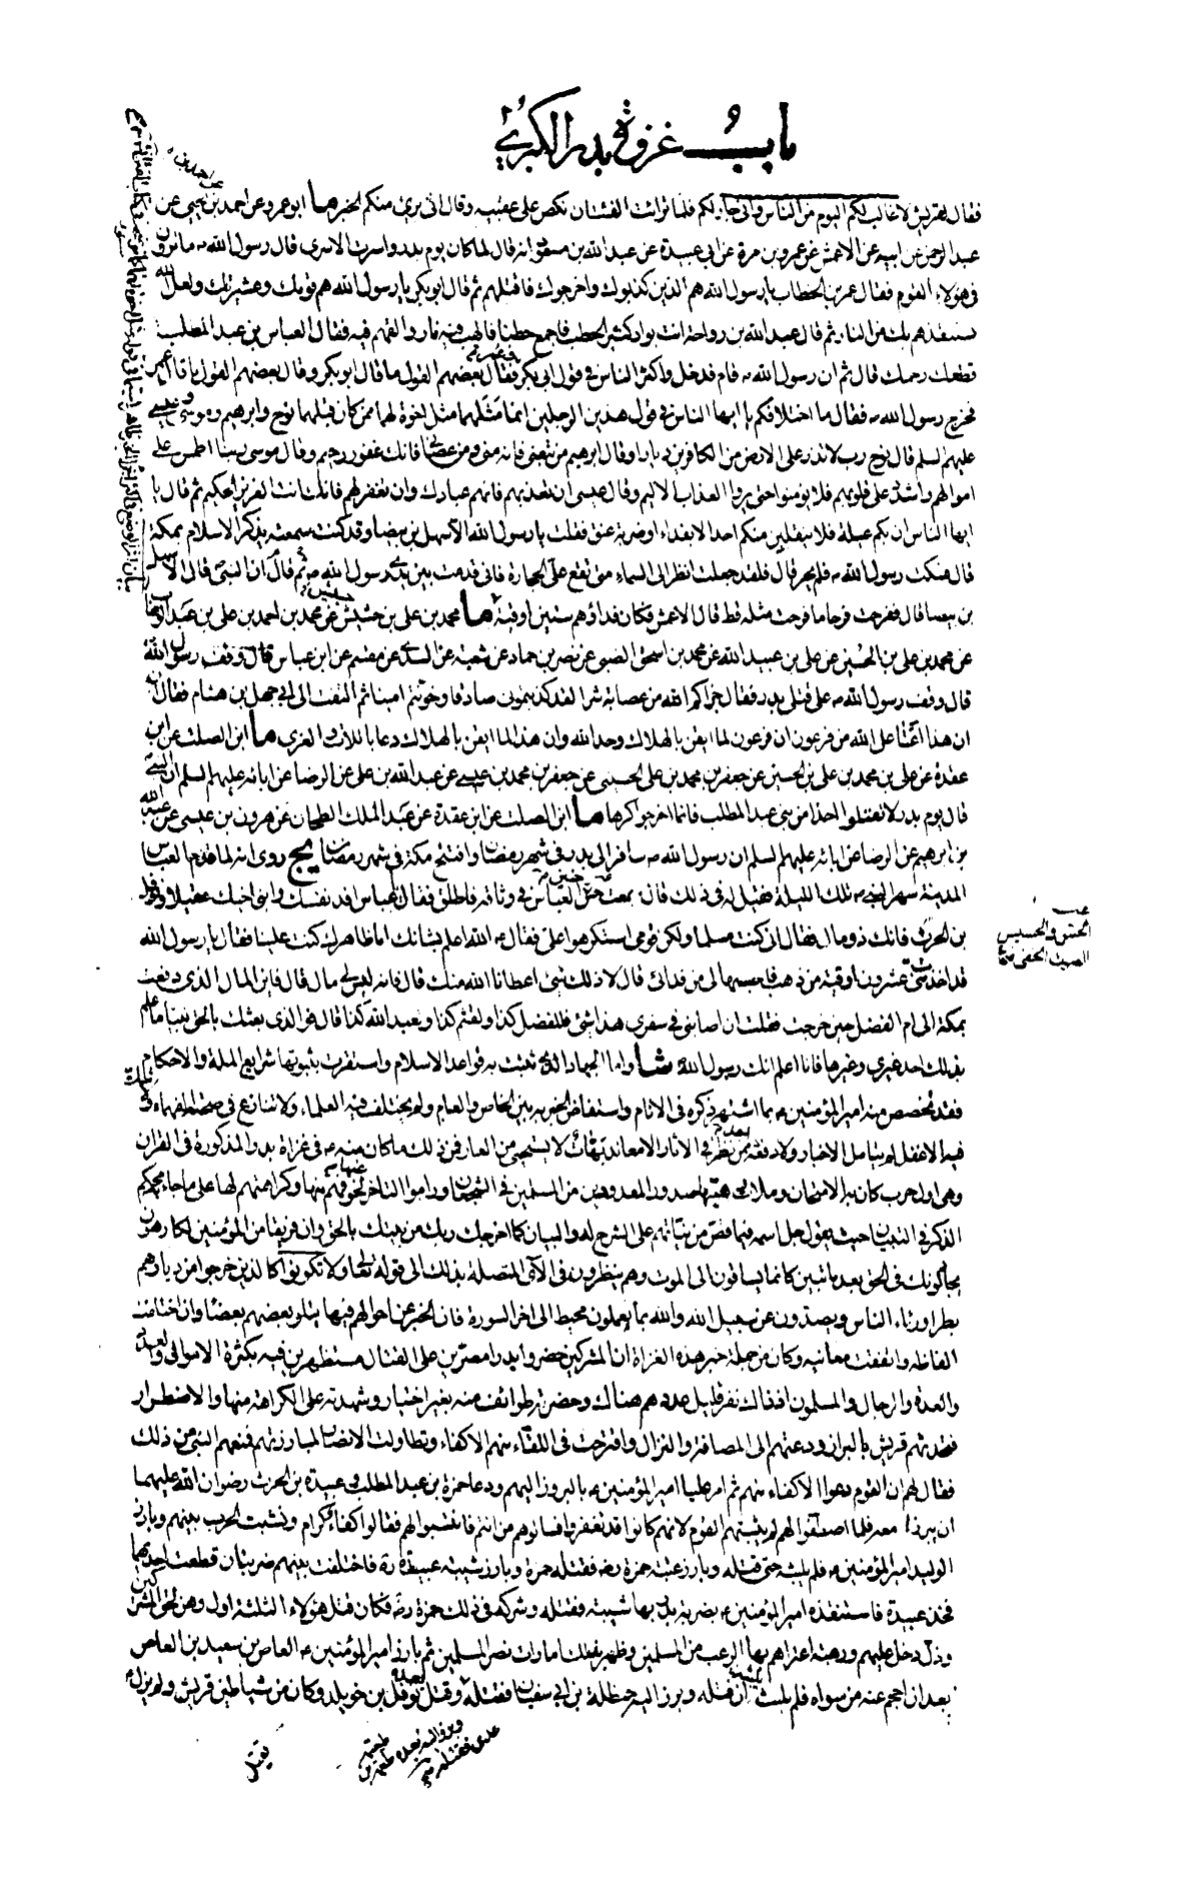 باب غزوة بدر الكبرى
فقال لقريش لا غالب لكم اليوم من الناس واني جار لكم فلما تراءت الفئتان نكص على عقبيه وقال اني بريء منكم الخبر ما ابو عمرو عن احمد بن يحيى عن
عبد الرحمن عن ابيه عن الاعمش عن عمرو بن مرة عن ابي عبيدة عن عبد الله بن مسعود انه قال لما كان يوم بدر واسرت الاسرى قال رسول الله ص ما ترون
في هؤلاء القوم فقال عمر بن الخطاب يا رسول الله هم الذين كذبوك واخرجوك فاقتلهم ثم قال ابو بكر يا رسول الله هم قومك وعشيرتك ولعل الله
يستنقذهم بك من النار ثم قال عبد الله بن رواحة انت بواد كثير الحطب فاجمع حطبا فالهب فيه نارا والقهم فيه فقال العباس بن عبد المطلب
قطعك رحمك قال ثم ان رسول الله ص قام فدخل واكثر الناس في قول ابي بكر وعمر فقال بعضهم القول ما قال ابو بكر وقال بعضهم القول ما قال عمر
فخرج رسول الله ص فقال ما اختلافكم يا ايها الناس في قول هذين الرجلين انما مثلهما مثل اخوة لهما ممن كان قبلهما نوح وابراهيم وموسى وعيسى
عليهم السلم قال نوح رب لا تذر على الارض من الكافرين ديارا وقال ابراهيم من تبعني فانه مني ومن عصاني فانك غفور رحيم وقال موسى ربنا اطمس على
اموالهم واشدد على قلوبهم فلا يؤمنوا حتى يروا العذاب الاليم وقال عيسى ان تعذبهم فانهم عبادك وان تغفر لهم فانك انت العزيز الحكيم ثم قال يا
ايها الناس ان بكم عيلة فلا ينقلبن منكم احد الا بفداء او ضربة عنق فقلت يا رسول الله الا سهل بن بيضا وقد كنت سمعته يذكر الاسلام بمكة
قال فسكت رسول الله ص فلم يحر قال فلقد جعلت انظر الى السماء متى تقع علي الحجارة فاني قدمت بين يدي رسول الله ص ثم قال ان النبي قال الا سهل
بن بيضا قال ففرحت فرحا ما فرحت مثله قط قال الاعمش فكان فداؤهم ستين اوقية ما محمد بن علي بن خشيش عن محمد بن احمد بن علي بن عبد الوهاب
عن محمد بن علي بن الحسين عن علي بن عبيد الله عن محمد بن اسحق الضبي عن نصر بن حماد عن شعبة عن السدي عن مقسم عن ابن عباس قال وقف رسول الله
قال وقف رسول الله ص على قتلى بدر فقال جزاكم الله من عصابة شرا لقد كذبتموني صادقا وخونتم امينا ثم التفت الى ابي جهل بن هشام فقال
ان هذا اعتا على الله من فرعون ان فرعون لما ايقن بالهلاك وحد الله وان هذا لما ايقن بالهلاك دعا باللات والعزى ما ابن الصلت عن ابن
عقدة عن علي بن محمد بن علي بن الحسين عن جعفر بن محمد بن علي الحسيني عن جعفر بن محمد بن عيسى عن عبد الله بن علي عن الرضا عن ابائه عليهم السلم ان النبي
قال يوم بدر لا تقتلوا احدا من بني عبد المطلب فانما اخرجوا كرها ما ابن الصلت عن ابن عقدة عن عبد الملك الطحان عن هرون بن عيسى عن عبد الله
بن ابرهيم عن الرضا عن ابائه عليهم السلم ان رسول الله ص سافر الى بدر في شهر رمضان وافتتح مكة في شهر رمضان يج روى انه لما قدم العباس
المدينة سهر النبي ص تلك الليلة فقيل له في ذلك قال سمعت حس العباس في وثاقه فاطلق فقال يا عباس افد نفسك وابني اخيك عقيلا ونوفل
بن الحرث فانك ذو مال فقال اني كنت مسلما ولكن قومي استكرهوا علي فقال ص الله اعلم بشانك اما ظاهرك كنت علينا فقال يا رسول الله
قد اخذت مني عشرون اوقية من ذهب فاحسبها لي من فدائي قال لا ذلك شيء اعطانا الله منك قال فانه ليس لي مال قال فاين المال الذي دفعت
بمكة الى ام الفضل حين خرجت فقلت ان اصابني في سفري هذا شيء فللفضل كذا ولقثم كذا ولعبد الله كذا قال فوالذي بعثك بالحق نبيا ما علم
بذلك احد غيري وغيرها فانا اعلم انك رسول الله شا واما الجهاد الذي تثبت به قواعد الاسلام واستقرت بثبوتها شرايع الملة والاحكام
فقد تخصص منه امير المؤمنين ع بما اشتهر ذكره في الانام واستفاض الخبر به بين الخاص والعام ولم يختلف فيه العلماء ولا تنازع في صحته الفهماء ولا شك
فيه الا غفل لم يتامل الاخبار ولا دفعه ممن نظر في الاثار الا معاند بهات لا يستحيي من العار فمن ذلك ما كان منه ع في غزاة بدر المذكورة في القران
وهي اول حرب كان به الامتحان وملات هيبتها صدور المعدودين من المسلمين في الشجعان وراموا التاخر عنها لخوفهم منها وكراهتهم لها على ما جاء محكم
الذكر في التبيان حيث يقول جل اسمه فيما قص من نبائهم على الشرح له والبيان كما اخرجك ربك من بيتك بالحق وان فريقا من المؤمنين لكارهون
يجادلونك في الحق بعد ما تبين كانما يساقون الى الموت وهم ينظرون في الاي المتصلة بذلك الى قوله تعالى ولا تكونوا كالذين خرجوا من ديارهم
بطرا ورئاء الناس ويصدون عن سبيل الله والله بما يعملون محيط الى اخر السورة فان الخبر عن احوالهم فيها يتلو بعضهم بعضا وان اختلفت
الفاظه واتفقت معانيه وكان من جملة خبر هذه الغزاة ان المشركين حضروا بدرا مصرين على القتال مستظهرين فيه بكثرة الاموال والعدد
والعدة والرجال والمسلمون اذ ذاك نفر قليل عددهم هناك وحضرته طوائف منه بغير اختيار وشهدته على الكراهة منها والاضطرار
فتحدتهم قريش بالبراز ودعتهم الى المصافة والنزال واقترحت في اللقاء منهم الاكفاء وتطاولت الانصار لمبارزتهم فمنعهم النبي من ذلك
فقال لهم ان القوم دعوا الاكفاء منهم ثم امر عليا امير المؤمنين ع بالبروز اليهم ودعا حمزة بن عبد المطلب وعبيدة بن الحرث رضوان الله عليهما
ان يبرزا معه فلما اصطفوا لهم لم يثبتهم القوم لانهم كانوا قد تغفروا فسالوهم من انتم فانتسبوا لهم فقالوا اكفاء كرام ونشبت الحرب بينهم وبارز
الوليد امير المؤمنين ع فلم يلبثه حتى قتله وبارز عتبة حمزة رضه فقتله حمزة وبارز شيبة عبيدة ره فاختلفت بينهم ضربتان قطعت احديهما
فخذ عبيدة فاستنقذه امير المؤمنين ع بضربة بدر بها شيبة فقتله وشركه في ذلك حمزة رضه فكان قتل هؤلاء الثلثة اول وهن لحق المشركين
وذل دخل عليهم ورهبة اعتراهم بها الرعب من المسلمين وظهر بذلك امارات نصر المسلمين ثم بارز امير المؤمنين ع العاص بن سعيد بن العاص
بعد ان احجم عنه من سواه فلم يلبث ان قتله وبرز اليه حنظلة بن ابي سفيان فقتله وقتل بعده نوفل بن خويلد وكان من شياطين قريش ولم يزل ع
وبرز اليه بعده طعيمة بن عدي فقتله
يقتل